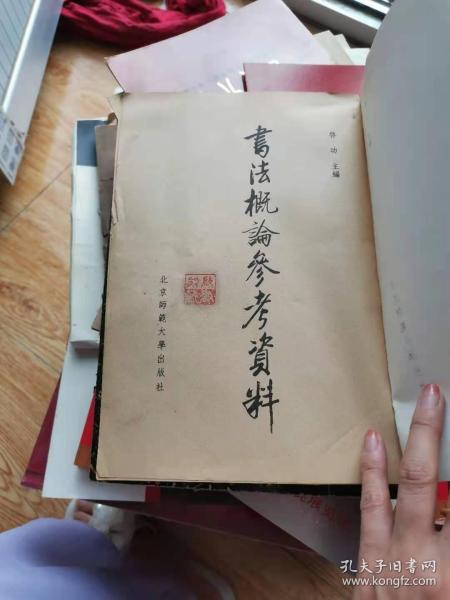 啓功 主編
書法概論參考資料
北京師範大學出版社
孔夫子旧书网
www.kongfz.com